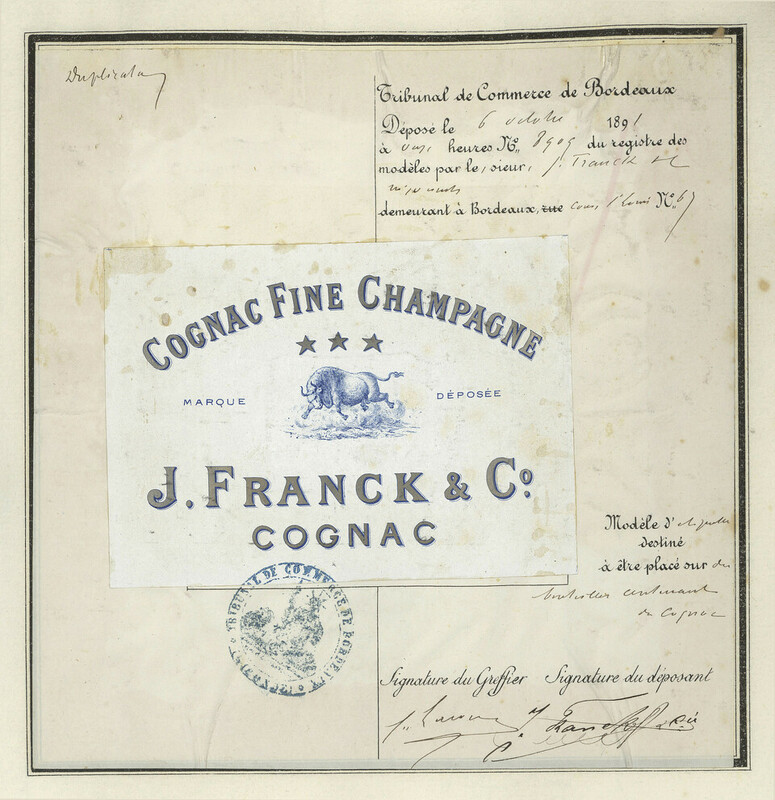 Duplicata
Tribunal de Commerce de Bordeaux
Déposé le 6 octobre 1891
à onze heures No. 8909 du registre des
modèles par le, sieur, J. Franck &
négociants
demeurant à Bordeaux, rue cours No. 67
COGNAC FINE CHAMPAGNE
MARQUE DÉPOSÉE
J. FRANCK & Co.
COGNAC
Modèle d'étiquette
destiné
à être placé sur des
bouteilles contenant
du Cognac
TRIBUNAL DE COMMERCE DE BORDEAUX
Signature du Greffier Signature du déposant
J. Franck